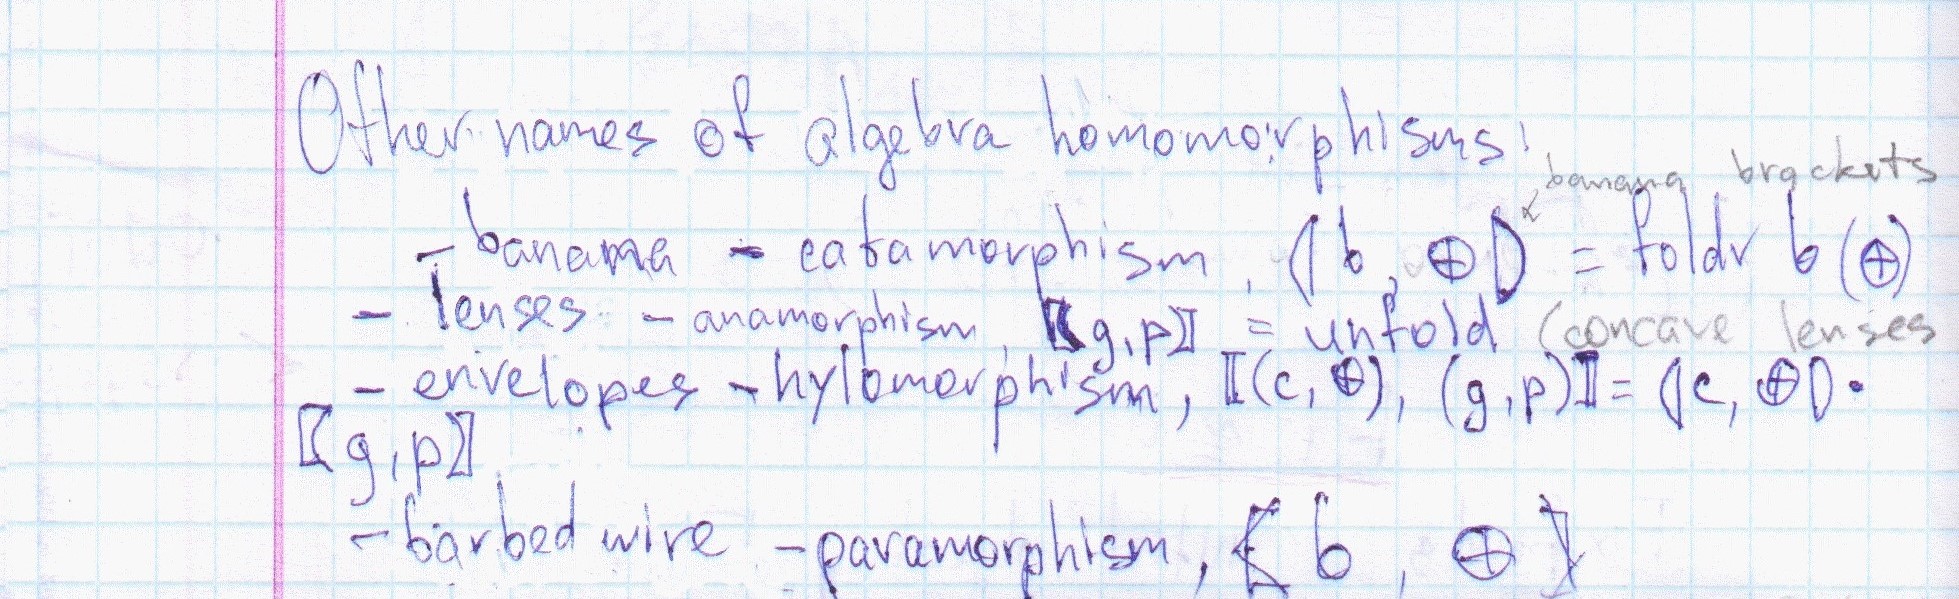 Other names of algebra homomorphisms:
banana brackets
- banana - catamorphism, ⦇b, ⊕⦈ = foldr b (⊕)
- lenses - anamorphism, 〖g,p〗 = unfold (concave lenses
- envelopes - hylomorphism, ⟦(c, ⊕), (g,p)⟧ = ⦇c, ⊕⦈ •
〖g,p〗
- barbed wire - paramorphism, ⦃b, ⊕⦄